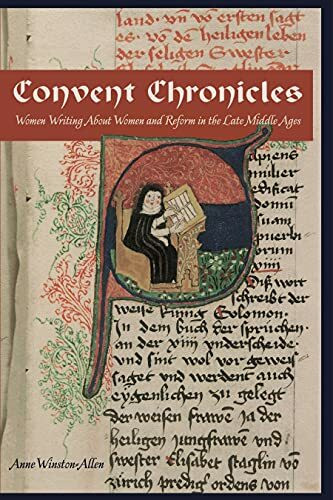 land· vō vō ersten sagt
es· vō de heiligen leben
der seligen Swester
Convent Chronicles
Women Writing About Women and Reform in the Late Middle Ages
apiens
milier
edificat
domū
suam
orum
xiiij
Diß wort
schreibet der
weise küng Solomon·
In dem buch der sprüchen·
an der xiiij underscheide·
und sint wol vor geweis
saget und werdent auch
eygenlichen zů gelegt
der weisen frawen ja der
heiligen jungfrawen und
swester Elisabet staglin vō
zürich predig ordens von
Anne Winston-Allen